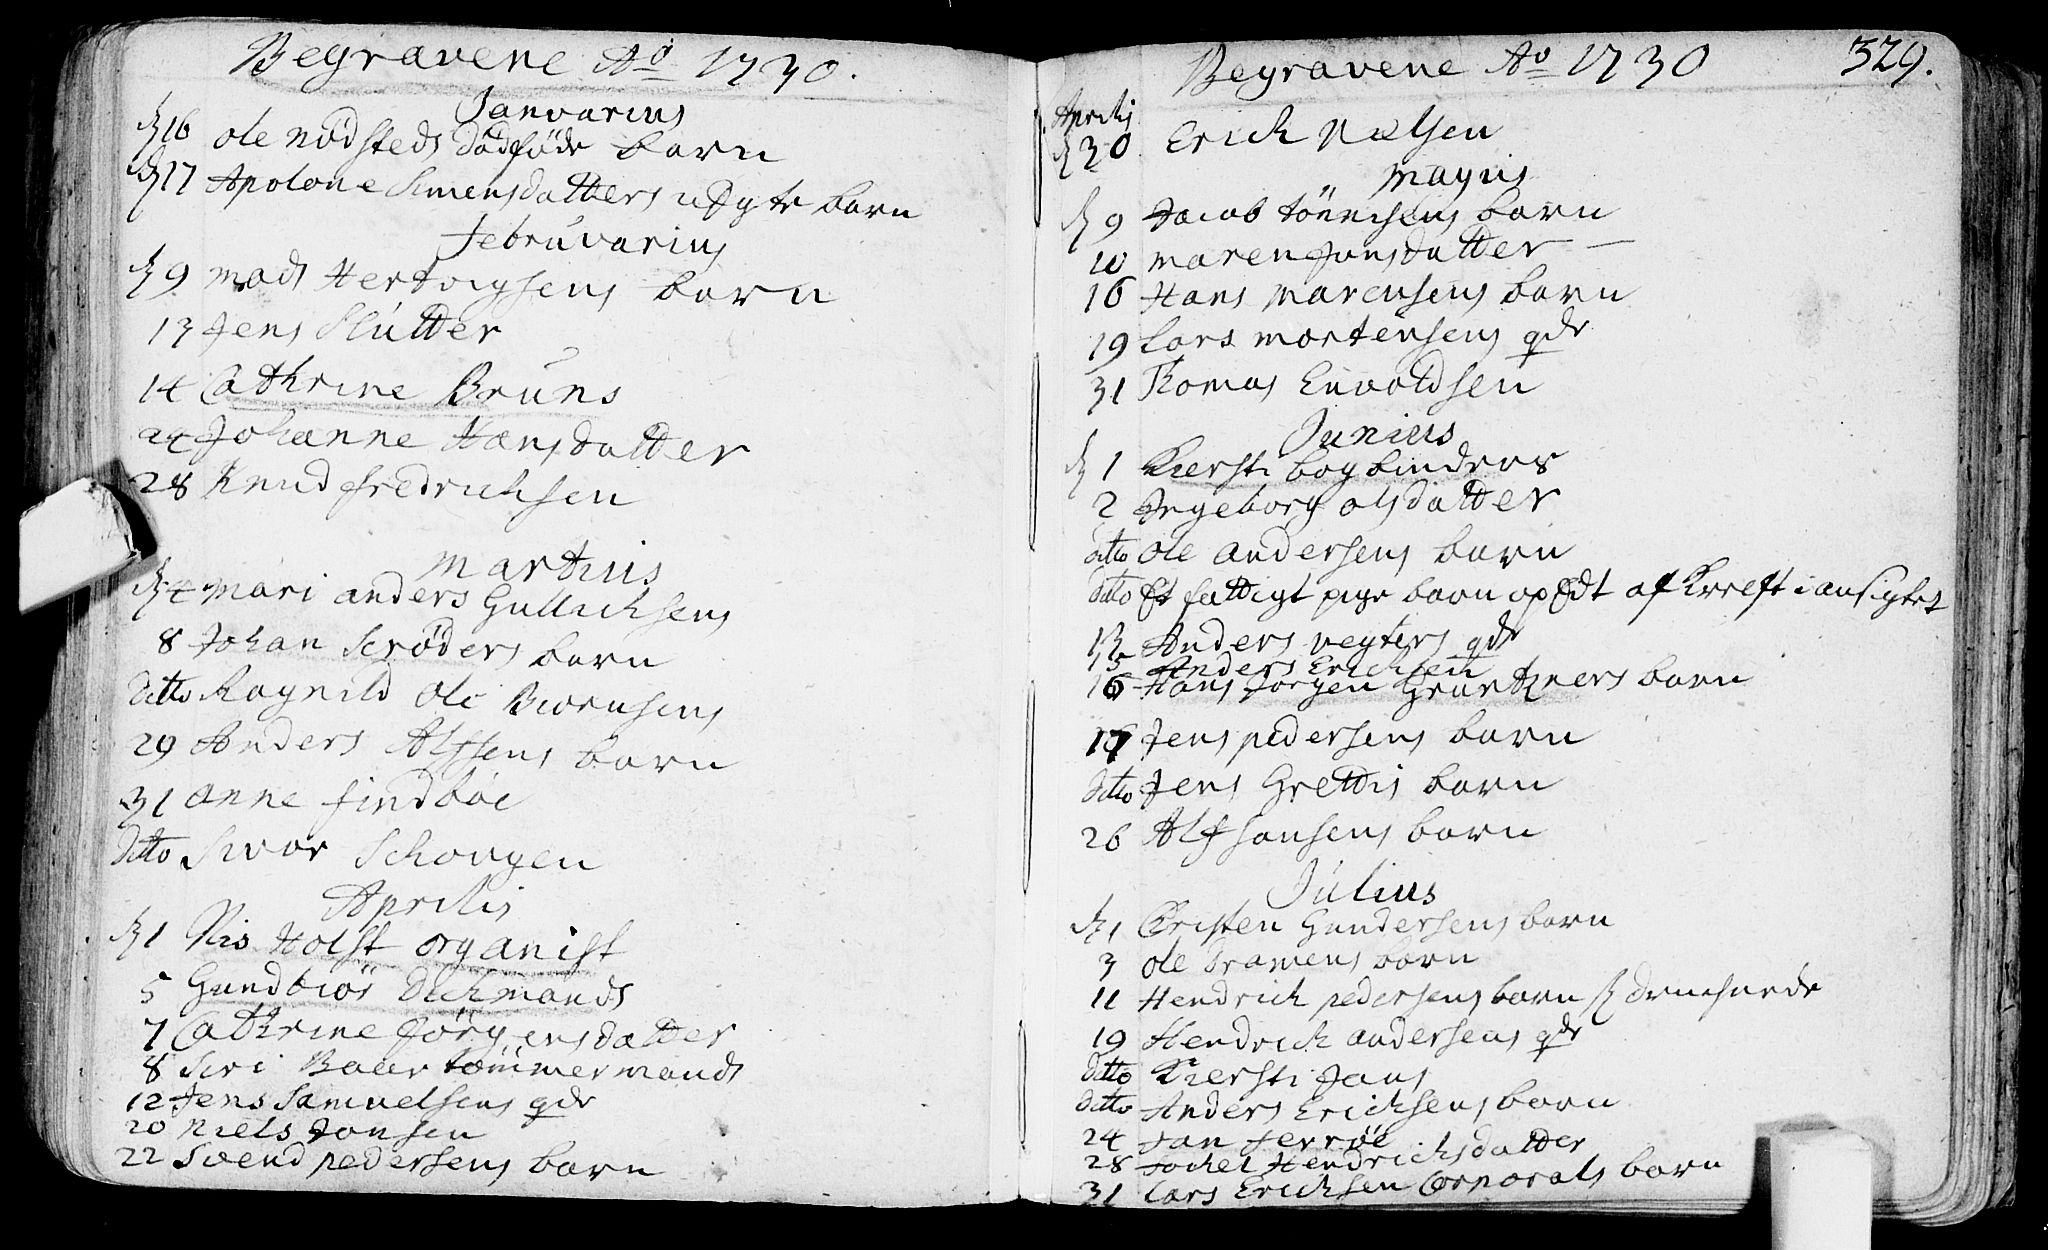 Begravene Aō 1730.
Janvarius
d 16 ole nødsteds dødføde barn
d 17 Apolone Simensdatters uægte barn
Februvarius
d 9 mads Hertvigsens barn
13 Jens Slutter
14 Cathrine Bruns
24 Johanne Hansdatter
28 Knud fredrichsen
Martius
d 4 Mari anders Gullichsens
8 Johan Scrøders barn
ditto Ragnild Ole Biørnsens
29 Anders Alfsens barn
31 anne findbøe
ditto Sivor Schougen
Aprilis
d 1 Nis Holst organist
5 Gundbiør Dichmands
7 Cathrine Jørgensdatter
8 Siri Baar tømmermands
12 Jens Samuelsens qde
20 Niels Jonsen
22 Svend pedersens barn
Begravene Aō 1730 329.
Aprilis
d 30 Erich Nielsen
Mayus
d 9 Jacob tönnesens barn
10 maren Jansdatter
16 Hans marensens barn
19 Lars mortensens qde
31 Thomas Envoldsen
Junius
d 1 Kiersti bogbinders
2 Ingeborg olsdatter
ditto ole andersens barn
ditto Et fattigt pige barn opædt af Kræft i ansigtet
13 Anders vegters qde
15 Anders Erichsen
16 Hans Jørgen Grurtners barn
17 Jens pedersens barn
ditto Jens Grettis barn
26 Alf hansens barn
Julius
d 1 Christen Gundersens barn
3 ole Dramens barn
11 Hendrich pedersens barn druchnede
19 Hendrich andersens qde
ditto Kiersti Jans
ditto Anders Erichsens barn
24 Jan ferrøe
28 Hendrichsdatter
31 Lars Erichsen Corporals barn